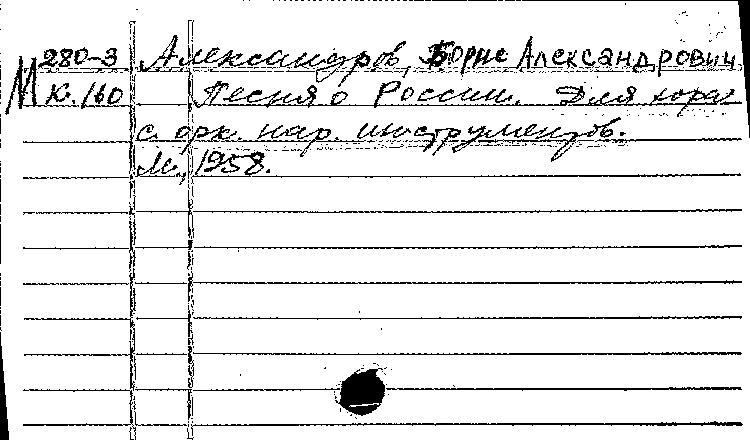 280-3 Александров, Борис Александрович.
М К.160 Песня о России. Для хора
с орк. нар. инструментов.
М., 1958.